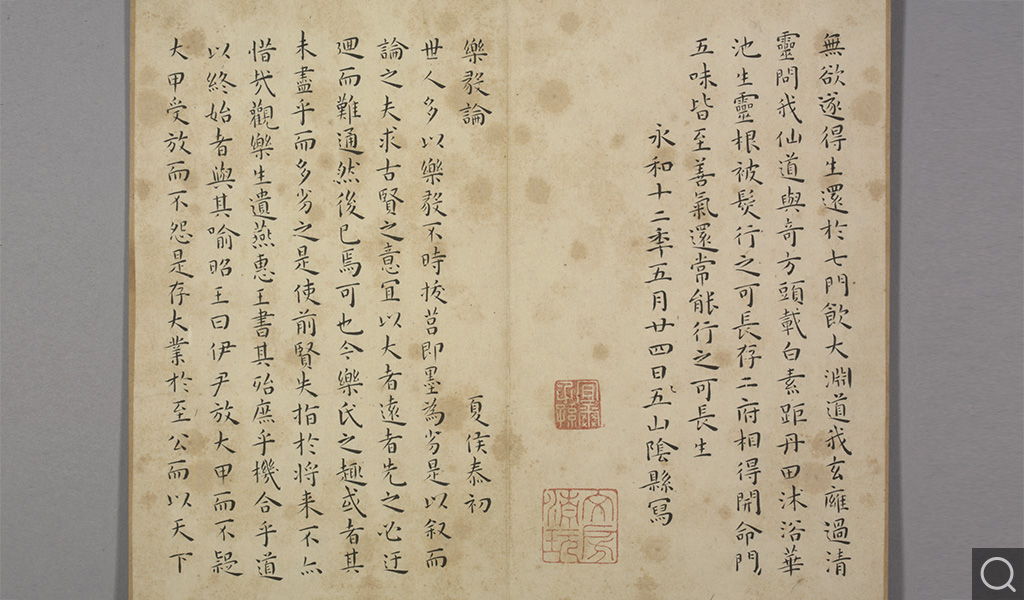 無欲遂得生還於七門飲大淵道我玄廱過清
靈問我仙道與奇方頭載白素距丹田沭浴華
池生靈根被髮行之可長存二府相得開命門
五味皆至善氣還常能行之可長生
永和十二年五月廿四日五山陰縣寫
樂毅論
夏侯泰初
世人多以樂毅不時拔莒即墨為劣是以叙而
論之夫求古賢之意宜以大者遠者先之必迂
迴而難通然後已焉可也今樂氏之趣或者其
未盡乎而多劣之是使前賢失指於將来不亦
惜哉觀樂生遺燕惠王書其殆庶乎機合乎道
以終始者與其喻昭王曰伊尹放大甲而不疑
大甲受放而不怨是存大業於至公而以天下